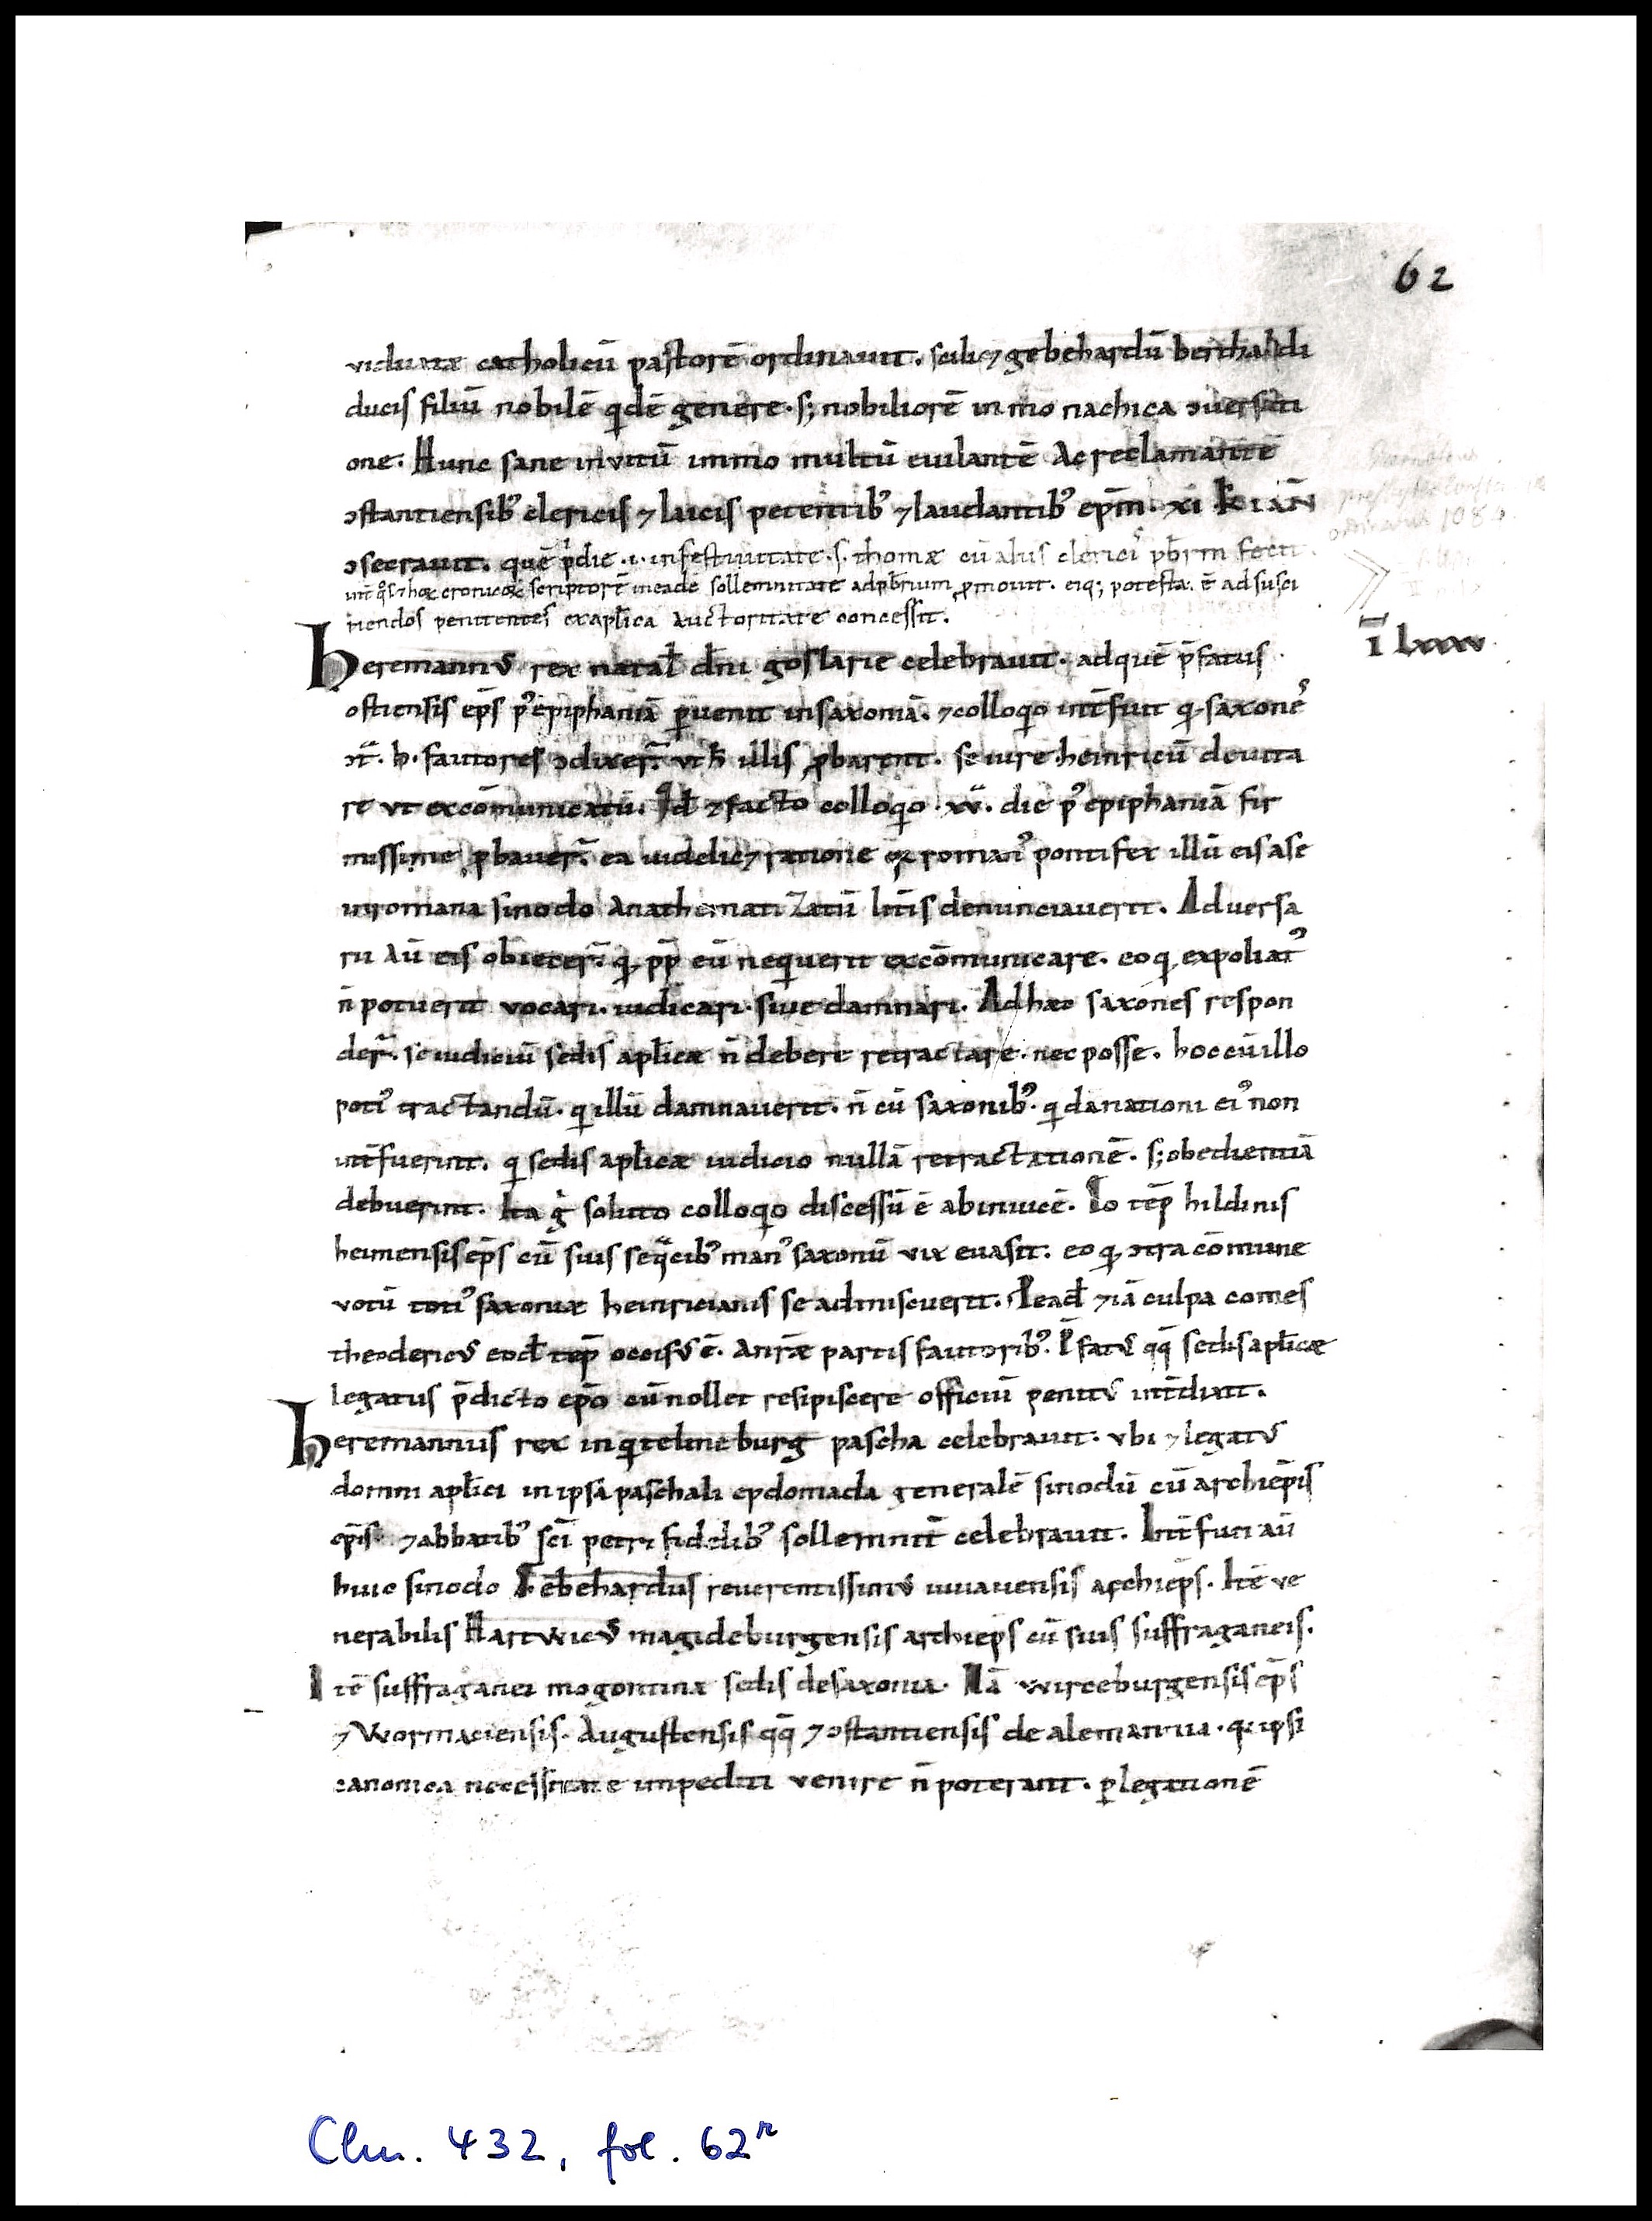 62
viduatæ catholicū pastorē ordinauit. scilicꝫ gebehardū berthaldi
ducis filiū nobilē qͥdē genere. sꝫ nobiliorē in monachica ↄuersati
one. Hunc sane inuitū immo multū eiulantē ac reclamantē
ↄstantiensibꝰ clericis ⁊ laicis petentibꝰ ⁊ laudantibꝰ ep̄m. xi k̄ ian̄
ↄsecrauit. quē p̄die .i. in festiuitate .s. thomæ cū aliis clericis pb̄rm fecit
hæc cronicæ scriptorē in eadē sollemnitate ad pb̄rium ꝓmouit. eiqꝫ potestatē ad susci
piendos penitentes ex aplica auctoritate concessit.
ī lxxxv.
heremannus rex natal̄ dn̄i goslarie celebrauit. ad quē p̄fatus
ostiensis ep̄s pꝰ epiphaniā ꝑuenit in saxoniā. ⁊ colloqͥo int̄fuit qͦ saxoneˢ
ↄtͣ .h. fautores ↄdixerͣ. vt h̄ illis ꝓbarent. se iure heinricū deuita
re vt excōmunicatū. Qd̄ ⁊ facto colloqͥo .xv. die pꝰ epiphaniā fir
missime ꝓbauerͣ. ea uidelicꝫ ratione qꝫ romanꝰ pontifex illū eis a se
in romana sinodo anathematizatū litt̄is denunciauerit. Aduersa
rii aū eis obiecerͣ. qͦ pp̄ eū nequerit excōmunicare. eo qͦ expoliatꝰ
n̄ potuerit vocari. iudicari. siue damnari. Ad hæc saxones respon
derͣ. se iudiciū sedis aplicæ n̄ debere retractare. nec posse. hoc cū illo
potiꝰ tractandū. qͥ illū damnauerit. n̄ cū saxonibꝰ. qͥ danationi eiꝰ non
int̄fuerint. qͥ sedis aplicæ iudicio nullā retractationē. sꝫ obedientiā
debuerint. Ita gͥ soluto colloqͥo discessū ē abinuicē. Eo tēp hildinis
heimensis ep̄s cū suis seqͣcibꝰ manꝰ saxonū vix euasit. eo qͦ ↄtra cōmune
votū totiꝰ saxoniæ heinricianis se admiscuerit. Pro ead̄ ⁊iā culpa comes
theodericus eod̄ tēp occisus ē. a nr̄æ partis fautoribꝰ. P̄fatus qq̄ sedis aplicæ
legatus p̄dicto ep̄o cū nollet resipiscere officiū penitus int̄dixit.
heremannus rex in qͥteline burg pascha celebrauit. vbi ⁊ legatus
domni aplici in ipsa paschali epdomada generalē sinodū cū archiep̄is
ep̄is ⁊ abbatibꝰ sc̄i petri fidelibꝰ sollemnit̄ celebrauit. Int̄fuit aū
huic sinodo Gebehardus reuerentissimus iuuauensis archiep̄s. Itē ve
nerabilis Hartwicus magideburgensis archiep̄s cū suis suffraganeis.
Itē suffraganei mogontinæ sedis de saxonia. Nā wirceburgensis ep̄s
⁊ Wormaciensis. Augustensis qq̄ ⁊ ↄstantiensis de alemannia. qͥ ipsi
canonica necessitate impediti venire n̄ poterant. ꝑ legationē
Clm. 432, fol. 62ʳ